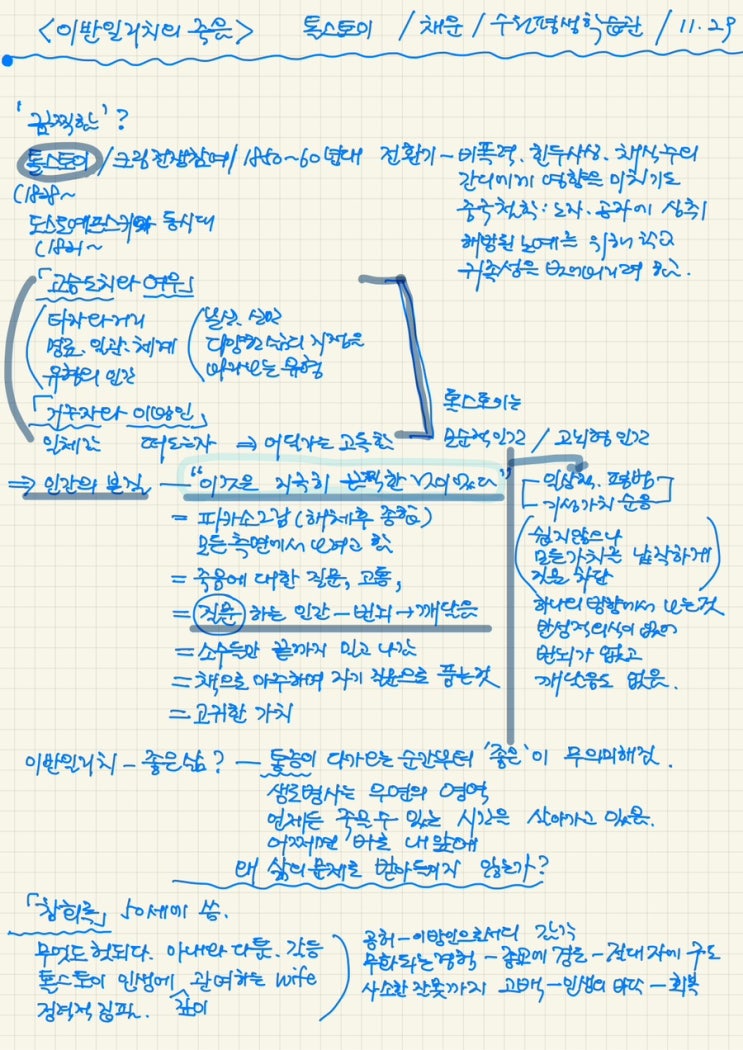 <이반일리치의 죽음> 톨스토이 / 채운 / 수원평생학습관 / 11.29
'끔찍한'?
톨스토이 / 크림전쟁참여 / 1850~60년대 전환기 - 비폭력. 힌두사상. 채식주의
(1828~ 간디에게 영향을 미치기도
도스토예프스키와 동시대 중국철학: 노자. 공자에 심취
(1821~ 해방된 노예를 위해 학교
귀족성은 벗어버리려 함.
「고슴도치와 여우」
명료. 일관. 체계 다양한 삶의 지점을
유형의 인간 바라보는 유형
「거주자와 이방인」
톨스토이는
떠도는자 ⇒ 어딘가는 고독한 모순적인간 / 고뇌형 인간
⇒ 인간의 본질 — "이것은 지극히 끔찍한 일이었다" 일상적. 평범
= 피카소그림 (해체후 종합) 기성가치 순응
모든 측면에서 보려고 함 쉽지않으나
= 죽음에 대한 질문, 고통, 모든가치를 납작하게
질문 차단
= 질문 하는 인간 - 번뇌 → 깨달음 하나의 방향에서 보는것
= 소수듣만 끝까지 밀고 나감 반성적의식이 없어
= 책으로 마주하며 자기 질문으로 품는것 번뇌가 없고
= 고귀한 가치 깨달음도 없음.
이반일리치 - 좋은삶? — 통증이 다가오는 순간부터 '좋은'이 무의미해짐.
생로병사는 우연의 영역
언제든 죽을 수 있는 시간을 살아가고 있음.
어쩌면 바로 내 앞에
왜 삶의 문제로 받아들이지 않는가?
「참회록」 50세에 씀.
무엇도 헛되다. 아내와 다툼. 갈등 공허 - 이방인으로서의 감각
톨스토이 인생에 깊이 관여하는 wife 무화되는 경험 - 종교에 경도 - 절대자에 구도
사소한 잘못까지 고백 - 인생의 바닥 - 회복